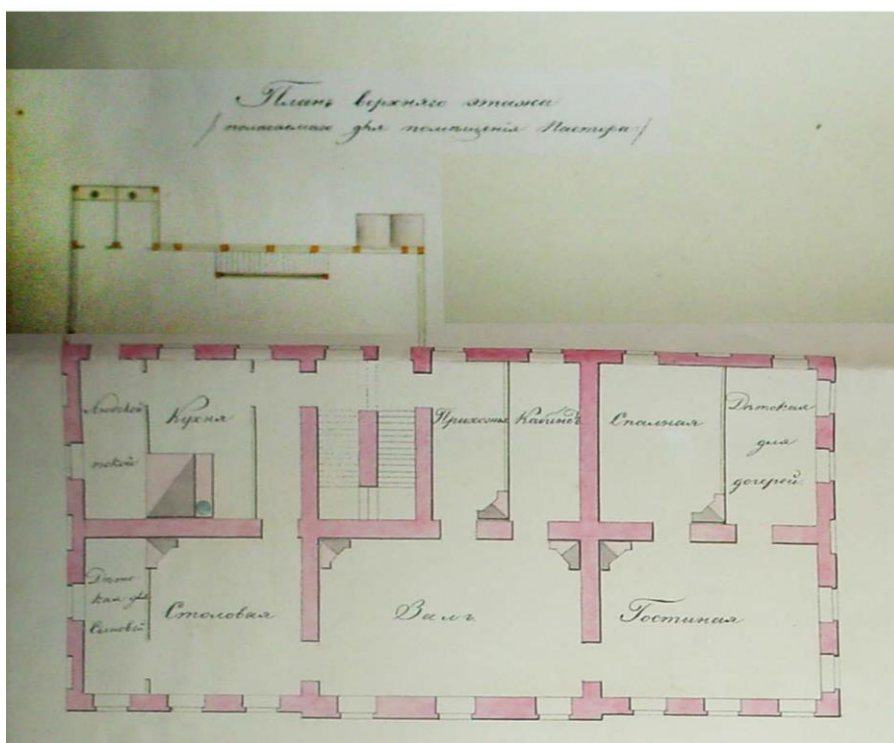 Планъ верхняго этажа
/ полагаемаго для помѣщенія Пастора /
Людской
покой
Кухня
Прихожья
Кабинѣтъ
Спалная
Дѣтская
для
дочерей.
Дѣтс
кая для
Сыновей
Столовая
Залъ
Гостиная